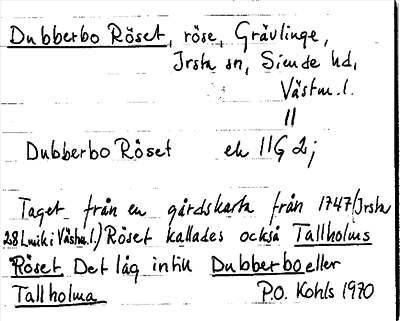 Dubberbo Röset, röse, Grävlinge,
Irsta sn, Siende hd,
Västm.l.
11
Dubberbo Röset ek 11G 2;
Taget från en gårdskarta från 1747 (Irsta
28 Lmk i Västm.l.) Röset kallades också Tallholms
Röset. Det låg intill Dubberbo eller
Tallholma P.O. Kohls 1970